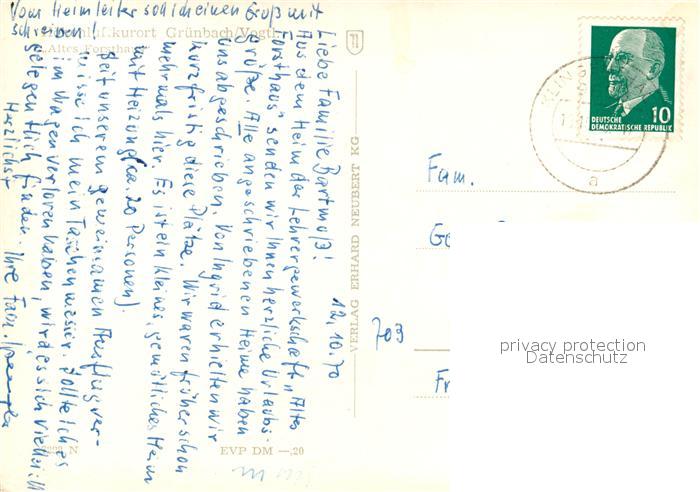 12.10.70
Liebe Familie Bartmuß!
Aus dem Heim der Lehrergewerkschaft „Altes
Forsthaus" senden wir Ihnen herzliche Urlaubs-
grüße. Alle angeschriebenen Heime haben
uns abgeschrieben. Von Ingrid erhielten wir
kurzfristig diese Plätze. Wir waren früher schon
mehrmals hier. Es ist ein kleines, gemütliches Heim
mit Heizung (ca. 20 Personen).
Seit unserem gemeinsamen Ausflug ver-
misse ich mein Taschenmesser. Sollte ich es
im Wagen verloren haben, wird es sich vielleicht
gelegentlich finden.
Herzlichst Ihre Fam.
Vom Heimleiter soll ich einen Gruß mit
schreiben!
kurort Grünbach/Vogtl.
„Altes Forsthaus"
VERLAG ERHARD NEUBERT KG
N
EVP DM —,20
DEUTSCHE
DEMOKRATISCHE REPUBLIK
10
a
Fam.
Ge
703
Fr
privacy protection
Datenschutz